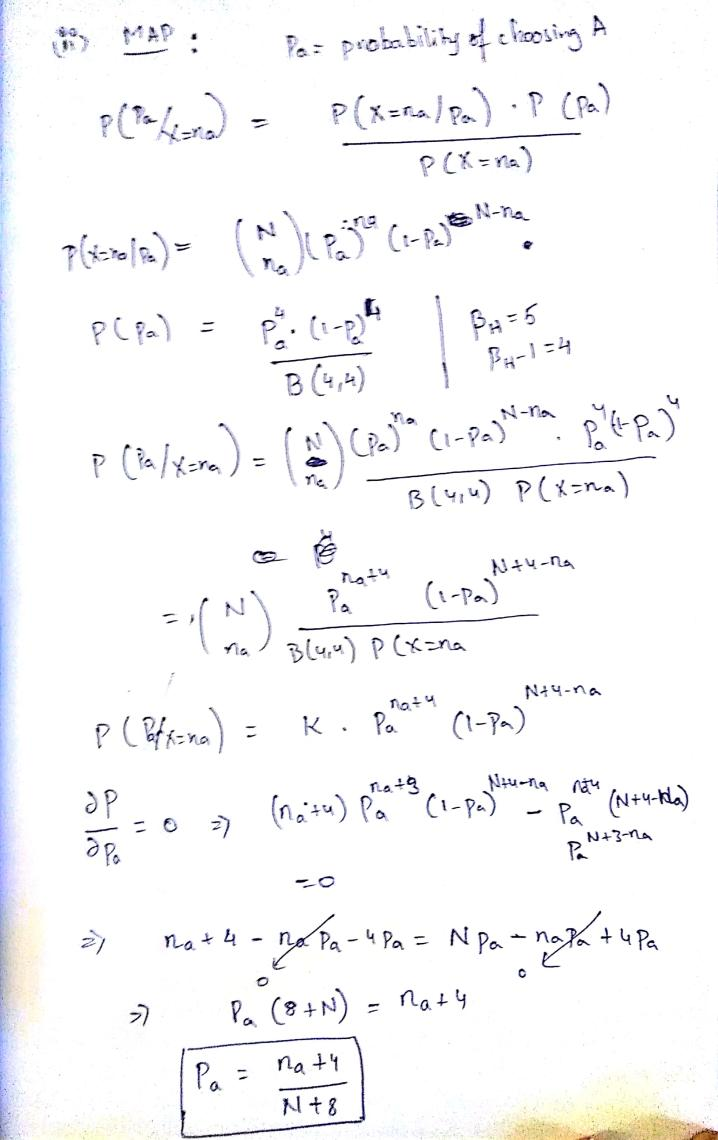 ii) MAP : Pa = probability of choosing A
P(Pa/x=na) = P(x=na/Pa) . P(Pa) / P(X=na)
P(x=na/Pa) = (N na) (Pa)^na (1-Pa)^N-na
P(Pa) = Pa^4 . (1-Pa)^4 / B(4,4) | βH=5
βH-1=4
P(Pa/x=na) = (N na) (Pa)^na (1-Pa)^N-na . Pa^4 (1-Pa)^4 / B(4,4) P(X=na)
= (N na) Pa^na+4 (1-Pa)^N+4-na / B(4,4) P(X=na
P(Pa/x=na) = K . Pa^na+4 (1-Pa)^N+4-na
∂P/∂Pa = 0 => (na+4) Pa^na+3 (1-Pa)^N+4-na - Pa^na+4 (N+4-na)
Pa^N+3-na
=0
=> na+4 - naPa - 4Pa = NPa - naPa + 4Pa
0 0
=> Pa (8+N) = na+4
Pa = na+4 / N+8